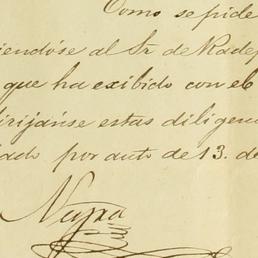 Como se pide
iendóse al Sr. de Rade
que ha exibido con el
irijanse estas diligen
ado por auto de 13. de